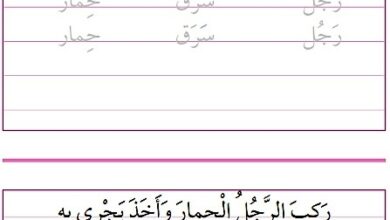 رَجُل سَرَق حِمار
رَجُل سَرَق حِمار
رَكِبَ الرَّجُلُ الْحِمارَ وَأَخَذَ يَجْري بِهِ